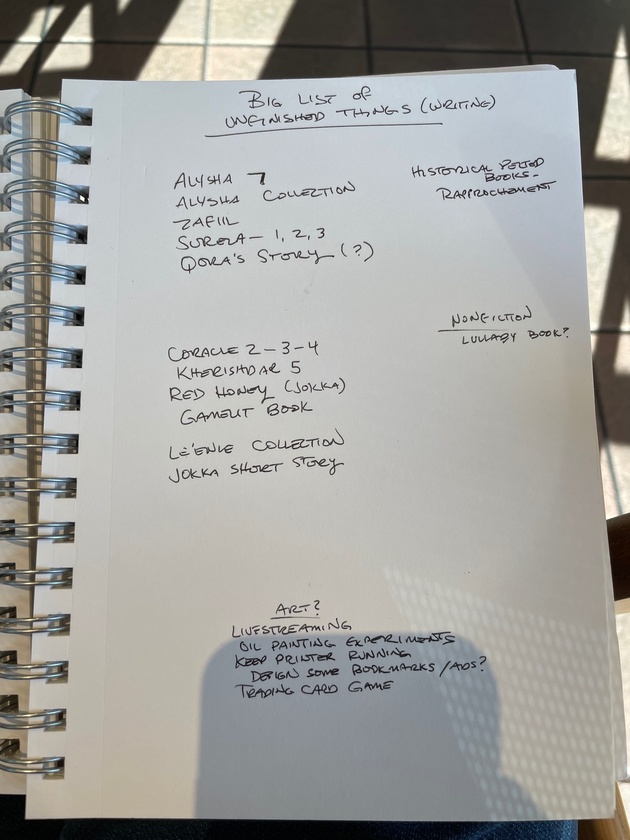 BIG LIST OF
UNFINISHED THINGS (WRITING)
ALYSHA 7
ALYSHA COLLECTION
ZAFIIL
SURELA - 1, 2, 3
QORA'S STORY (?)
HISTORICAL PELTED
BOOKS -
RAPPROCHEMENT
NONFICTION
LULLABY BOOK?
CORACLE 2-3-4
KHERISHDAR 5
RED HONEY (JOKKA)
GAMELIT BOOK
LE'ENLE COLLECTION
JOKKA SHORT STORY
ART?
LIVESTREAMING
OIL PAINTING EXPERIMENTS
KEEP PRINTER RUNNING
DESIGN SOME BOOKMARKS/ADS?
TRADING CARD GAME